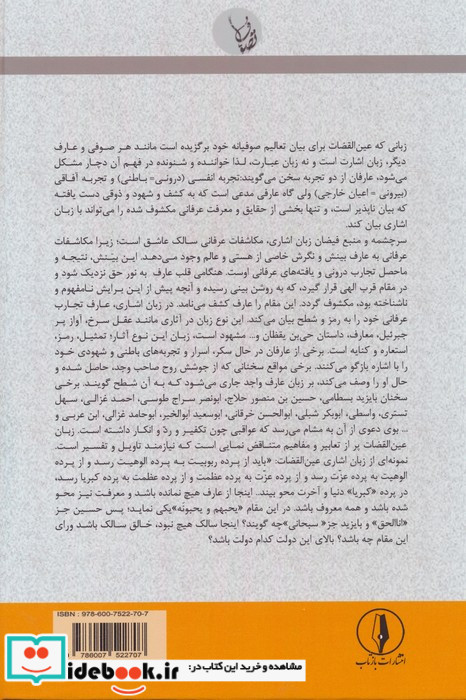 زبانی که عین‌القضات برای بیان تعالیم صوفیانه خود برگزیده است مانند هر صوفی و عارف
دیگر، زبان اشارت است و نه زبان عبارت، لذا خواننده و شنونده در فهم آن دچار مشکل
می‌شود، عارفان از دو تجربه سخن می‌گویند:تجربه انفسی (درونی= باطنی) و تجربه آفاقی
(بیرونی = اعیان خارجی) ولی گاه عارفی مدعی است که به کشف و شهود و ذوقی دست یافته
که بیان ناپذیر است، و تنها بخشی از حقایق و معرفت عرفانی مکشوف شده را می‌تواند با زبان
اشاری بیان کند.
سرچشمه و منبع فیضان زبان اشاری، مکاشفات عرفانی سالک عاشق است؛ زیرا مکاشفات
عرفانی به عارف بینش و نگرش خاصی از هستی و عالم وجود می‌دهد. این بینش، نتیجه و
ماحصل تجارب درونی و یافته‌های عرفانی اوست. هنگامی قلب عارف به نور حق نزدیک شود و
در مقام قرب الهی قرار گیرد، به روشن بینی رسیده و آنچه پیش از این برایش نامفهوم و
ناشناخته بود، مکشوف گردد. این مقام را عارف کشف می‌نامد. در زبان اشاری، عارف تجارب
عرفانی خود را به رمز و شطح بیان می‌کند. این نوع زبان در آثاری مانند عقل سرخ، آواز پر
جبرئیل، معارف، داستان حی‌بن یقظان و... مشهود است، زبان این نوع آثار؛ تمثیل، رمز،
استعاره و کنایه است. برخی از عارفان در حال سکر، اسرار و تجربه‌های باطنی و شهودی خود
را با اشاره بازگو می‌کنند. برخی مواقع سخنانی که از جوشش روح صاحب وجد، حاصل شده و
حال او را وصف می‌کند، بر زبان عارف واجد جاری می‌شود که به آن شطح گویند. برخی
سخنان بایزید بسطامی، حسین بن منصور حلاج، ابونصر سراج طوسی، احمد غزالی، سهل
تستری، واسطی، ابوبکر شبلی، ابوالحسن خرقانی، ابوسعید ابوالخیر، ابوحامد غزالی، ابن عربی و
... بوی دعوی از آن به مشام می‌رسد که عواقبی چون تکفیر و ردّ و انکار داشته است. زبان
عین‌القضات پر از تعابیر و مفاهیم متناقض نمایی است که نیازمند تاویل و تفسیر است.
نمونه‌ای از زبان اشاری عین‌القضات: «باید از پرده ربوبیت به پرده الوهیت رسد و از پرده
الوهیت به پرده عزّت رسد و از پرده عزّت به پرده عظمت و از پرده عظمت به پرده کبریا رسد،
در پرده «کبریا» دنیا و آخرت محو بیند.. اینجا از عارف هیچ نمانده باشد و معرفت نیز محو
شده باشد و همه معروف باشد. در این مقام «یحبهم و یحبونه»یکی نماید؛ پس حسین جز
«اناالحق» و بایزید جز« سبحانی»چه گویند؟ اینجا سالک هیچ نبود، خالق سالک باشد ورای
این مقام چه باشد؟ بالای این دولت کدام دولت باشد؟
ISBN : 978-600-7522-70-7
786007 522707
انتشارات بازتاب
مشاهده و خرید این کتاب در:
idebook.ir